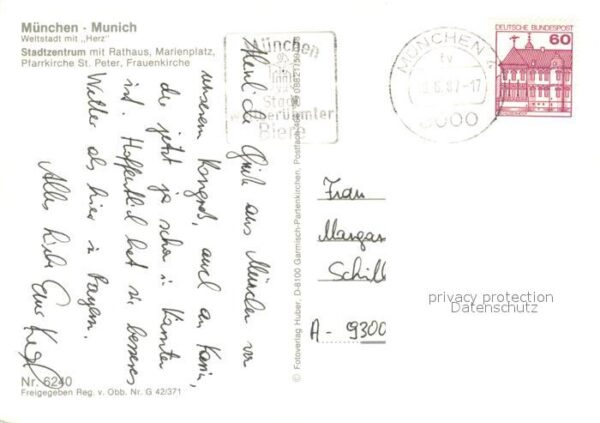 München - Munich
Weltstadt mit „Herz"
Stadtzentrum mit Rathaus, Marienplatz,
Pfarrkirche St. Peter, Frauenkirche
München
Stadt
weltberühmter
Biere
MÜNCHEN
tv
87-17
8000
DEUTSCHE BUNDESPOST
60
Grüße aus München von
unserem Kongreß, auch an Karin,
die jetzt ja schon in Kärnten
ist. Hoffentlich hat sie besseres
Wetter als hier in Bayern.
Alles Liebe Eure
© Fotoverlag Huber, D-8100 Garmisch-Partenkirchen, Postfach
Frau
Margar
Schill
A - 9300
privacy protection
Datenschutz
Nr. 6240
Freigegeben Reg. v. Obb. Nr. G 42/371